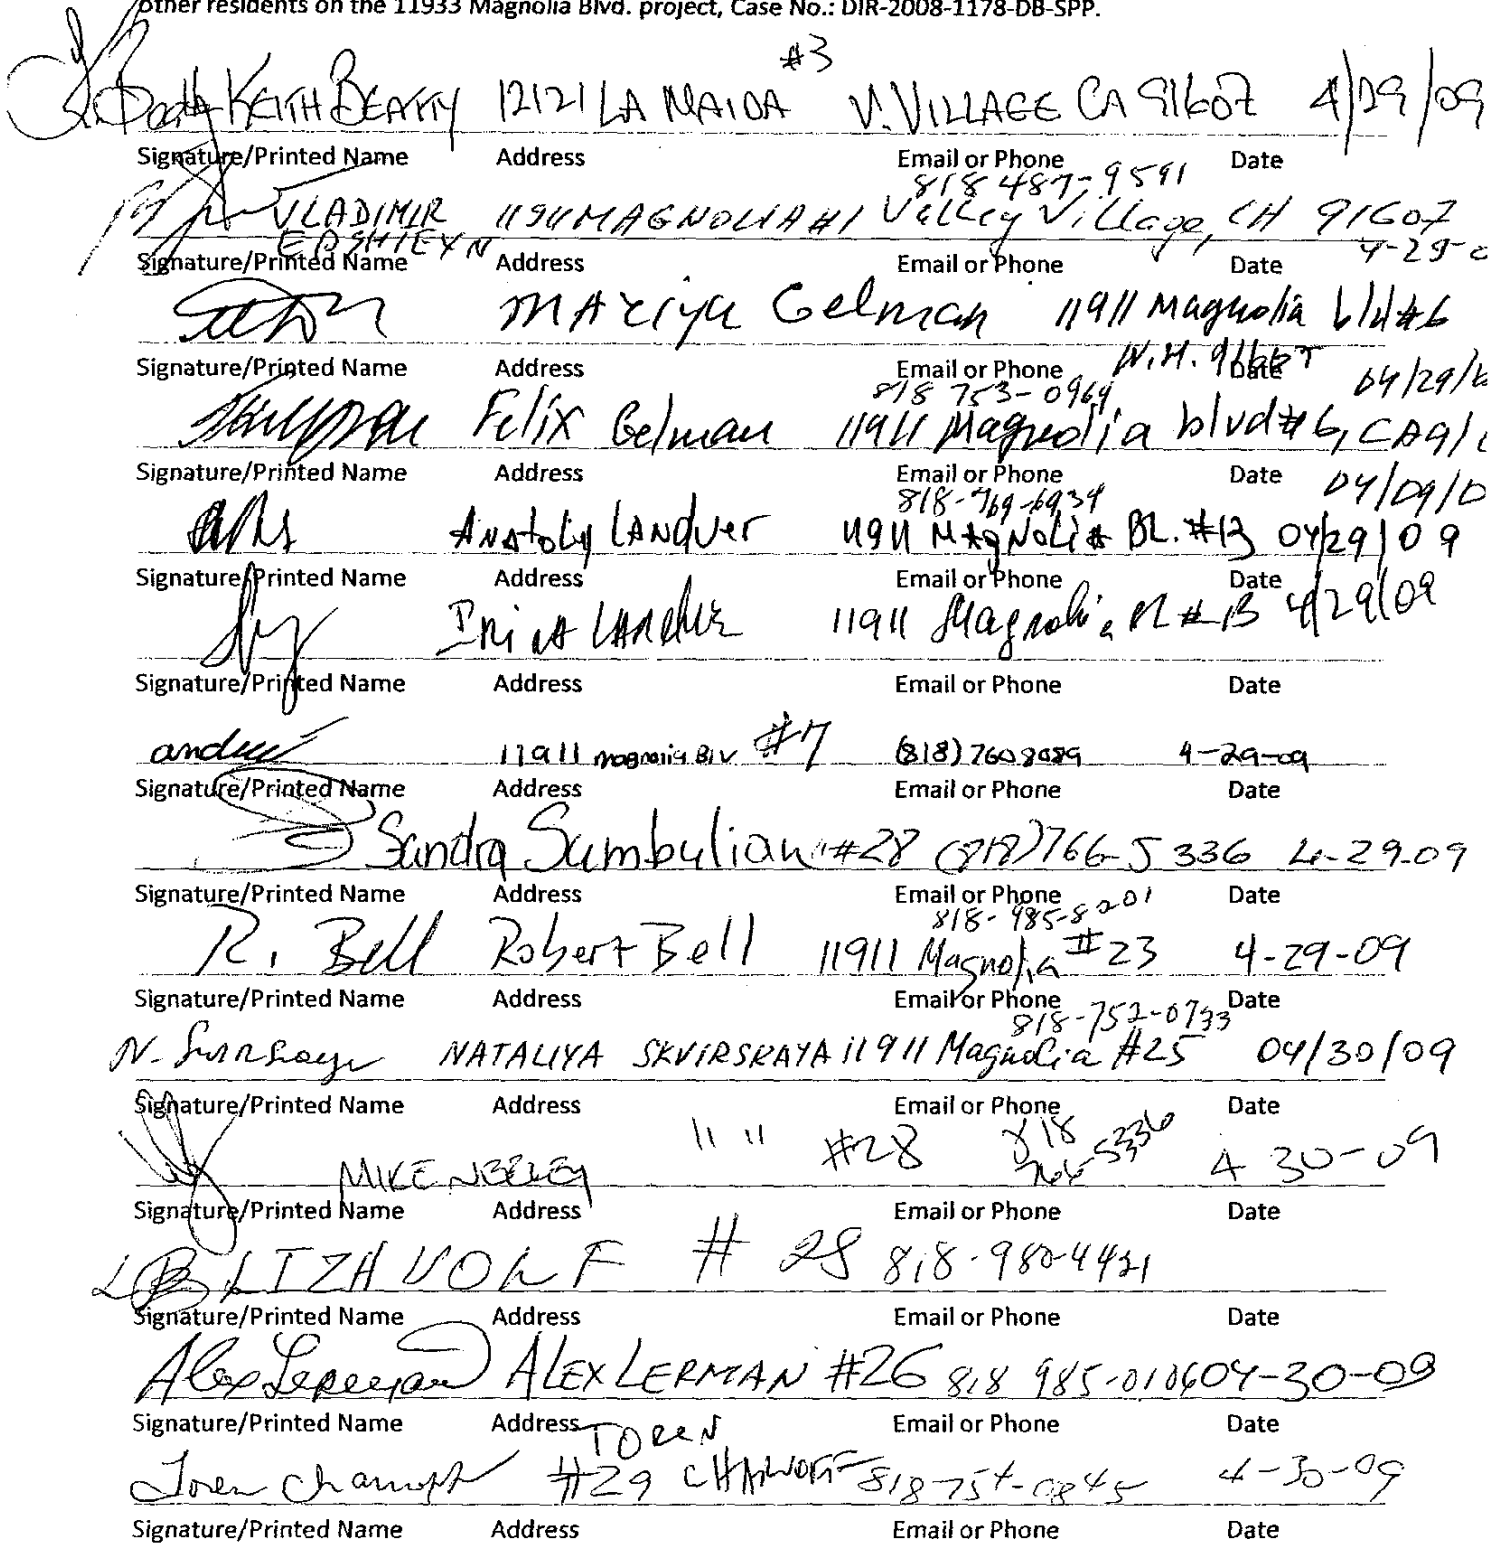 other residents on the 11933 Magnolia Blvd. project, Case No.: DIR-2008-1178-DB-SPP.
#3
KEITH BEATTY 12121 LA MAIDA V. VILLAGE CA 91607 4/29/09
Signature/Printed Name Address Email or Phone Date
818 487-9591
VLADIMIR 11911 MAGNOLIA #1 Valley Village, CA 91607
EPSHTEYN 4-29-0
Signature/Printed Name Address Email or Phone Date
Mariya Gelman 11911 Magnolia blvd #6
Signature/Printed Name Address Email or Phone Date
N.H. 04/29/
818 753-0969
Felix Gelman 11911 Magnolia blvd #6, CA 91
Signature/Printed Name Address Email or Phone Date
04/09/0
818-769-6934
Anatoly Landver 11911 Magnolia BL. #13 04/29/09
Signature/Printed Name Address Email or Phone Date
Irina Landver 11911 Magnolia Bl #13 4/29/09
Signature/Printed Name Address Email or Phone Date
11911 magnolia Blv #7 (818) 7608089 4-29-09
Signature/Printed Name Address Email or Phone Date
Sandra Sumbulian #28 (818) 766-5336 4-29-09
Signature/Printed Name Address Email or Phone Date
818-985-8201
R. Bell Robert Bell 11911 Magnolia #23 4-29-09
Signature/Printed Name Address Email or Phone Date
818-752-0733
N. NATALIYA SKVIRSKAYA 11911 Magnolia #25 04/30/09
Signature/Printed Name Address Email or Phone Date
MIKE NEELEY " " #28 818 766-5336 4 30-09
Signature/Printed Name Address Email or Phone Date
LIZA VOLF # 28 818-980-4421
Signature/Printed Name Address Email or Phone Date
Alex Lerman ALEX LERMAN #26 818 985-0106 04-30-09
Signature/Printed Name Address Email or Phone Date
TOREN
Toren #29 4-30-09
Signature/Printed Name Address Email or Phone Date